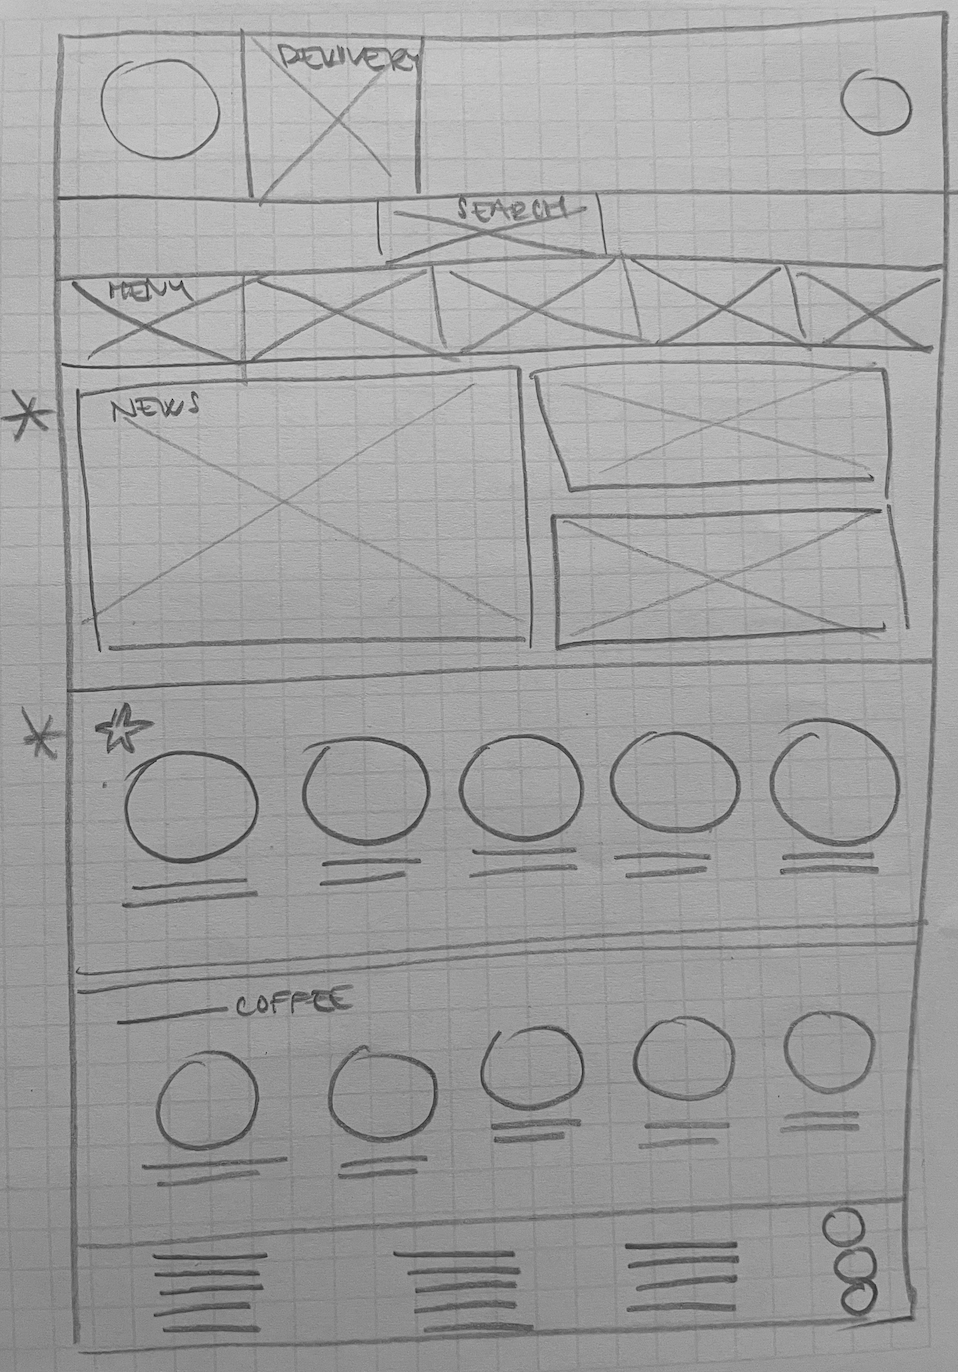 DELIVERY
SEARCH
MENU
NEWS
COFFEE